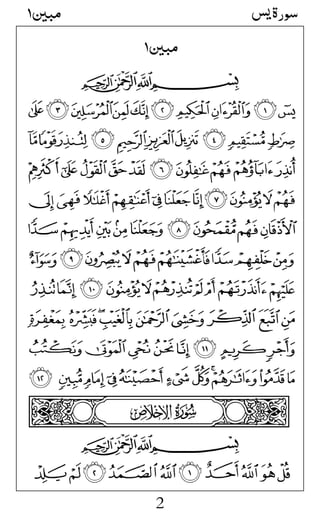 سورة يس
مبين١
مبين١
بِسْمِ اللَّهِ الرَّحْمَٰنِ الرَّحِيمِ
يسٓ ۝١ وَٱلْقُرْءَانِ ٱلْحَكِيمِ ۝٢ إِنَّكَ لَمِنَ ٱلْمُرْسَلِينَ ۝٣ عَلَىٰ
صِرَٰطٍ مُّسْتَقِيمٍ ۝٤ تَنزِيلَ ٱلْعَزِيزِ ٱلرَّحِيمِ ۝٥ لِتُنذِرَ قَوْمًا مَّآ
أُنذِرَ ءَابَآؤُهُمْ فَهُمْ غَٰفِلُونَ ۝٦ لَقَدْ حَقَّ ٱلْقَوْلُ عَلَىٰٓ أَكْثَرِهِمْ
فَهُمْ لَا يُؤْمِنُونَ ۝٧ إِنَّا جَعَلْنَا فِىٓ أَعْنَٰقِهِمْ أَغْلَٰلًا فَهِىَ إِلَى
ٱلْأَذْقَانِ فَهُم مُّقْمَحُونَ ۝٨ وَجَعَلْنَا مِنۢ بَيْنِ أَيْدِيهِمْ سَدًّا
وَمِنْ خَلْفِهِمْ سَدًّا فَأَغْشَيْنَٰهُمْ فَهُمْ لَا يُبْصِرُونَ ۝٩ وَسَوَآءٌ
عَلَيْهِمْ ءَأَنذَرْتَهُمْ أَمْ لَمْ تُنذِرْهُمْ لَا يُؤْمِنُونَ ۝١٠ إِنَّمَا تُنذِرُ
مَنِ ٱتَّبَعَ ٱلذِّكْرَ وَخَشِىَ ٱلرَّحْمَٰنَ بِٱلْغَيْبِ ۖ فَبَشِّرْهُ بِمَغْفِرَةٍ
وَأَجْرٍ كَرِيمٍ ۝١١ إِنَّا نَحْنُ نُحْىِ ٱلْمَوْتَىٰ وَنَكْتُبُ
مَا قَدَّمُوا۟ وَءَاثَٰرَهُمْ ۚ وَكُلَّ شَىْءٍ أَحْصَيْنَٰهُ فِىٓ إِمَامٍ مُّبِينٍ ۝١٢
سُورَةُ الإِخْلَاصِ
بِسْمِ اللَّهِ الرَّحْمَٰنِ الرَّحِيمِ
قُلْ هُوَ ٱللَّهُ أَحَدٌ ۝١ ٱللَّهُ ٱلصَّمَدُ ۝٢ لَمْ يَلِدْ
2